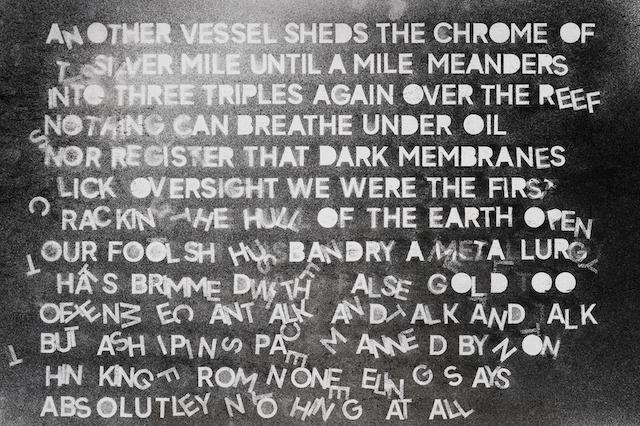 ANOTHER VESSEL SHEDS THE CHROME OF
ITS SILVER MILE UNTIL A MILE MEANDERS
INTO THREE TRIPLES AGAIN OVER THE REEF
NOTHING CAN BREATHE UNDER OIL
NOR REGISTER THAT DARK MEMBRANES
LICK OVERSIGHT WE WERE THE FIRST
CRACKIN THE HULL OF THE EARTH OPEN
OUR FOOLSH HUSBANDRY A METALLURGY
THAS BRIMMED WITH ALSE GOLD TOO
OFTEN WE CANT ALK AND TALK AND TALK
BUT ASHIP IN SPACE MANNED BY NON
THINKING FROM NONEELINGS AYS
ABSOLUTLEY NOTHING AT ALL